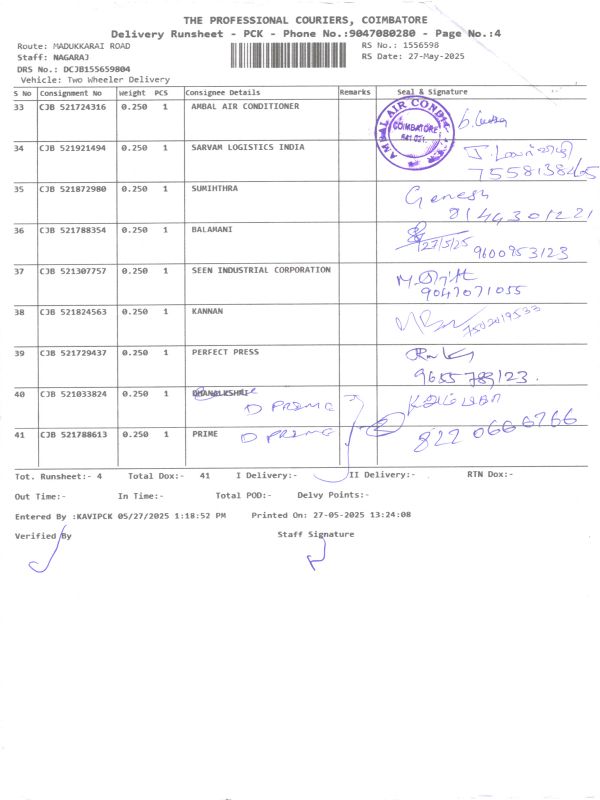 THE PROFESSIONAL COURIERS, COIMBATORE
Delivery Runsheet - PCK - Phone No.:9047080280 - Page No.:4
Route: MADUKKARAI ROAD RS No.: 1556598
Staff: NAGARAJ RS Date: 27-May-2025
DRS No.: DCJB155659804
Vehicle: Two Wheeler Delivery
S No Consignment No Weight PCS Consignee Details Remarks Seal & Signature
33 CJB 521724316 0.250 1 AMBAL AIR CONDITIONER
AMBAL AIR CONDI
COIMBATORE
641 021.
34 CJB 521921494 0.250 1 SARVAM LOGISTICS INDIA
7558138465
35 CJB 521872980 0.250 1 SUMIHTHRA Ganesh
8144301221
36 CJB 521788354 0.250 1 BALAMANI
27/5/25 9600953123
37 CJB 521307757 0.250 1 SEEN INDUSTRIAL CORPORATION
9047071055
38 CJB 521824563 0.250 1 KANNAN
7502019533
39 CJB 521729437 0.250 1 PERFECT PRESS
9655783123.
40 CJB 521033824 0.250 1
D PRIME
41 CJB 521788613 0.250 1 PRIME D PRIME 8220666766
Tot. Runsheet:- 4 Total Dox:- 41 I Delivery:- II Delivery:- RTN Dox:-
Out Time:- In Time:- Total POD:- Delvy Points:-
Entered By :KAVIPCK 05/27/2025 1:18:52 PM Printed On: 27-05-2025 13:24:08
Verified By Staff Signature